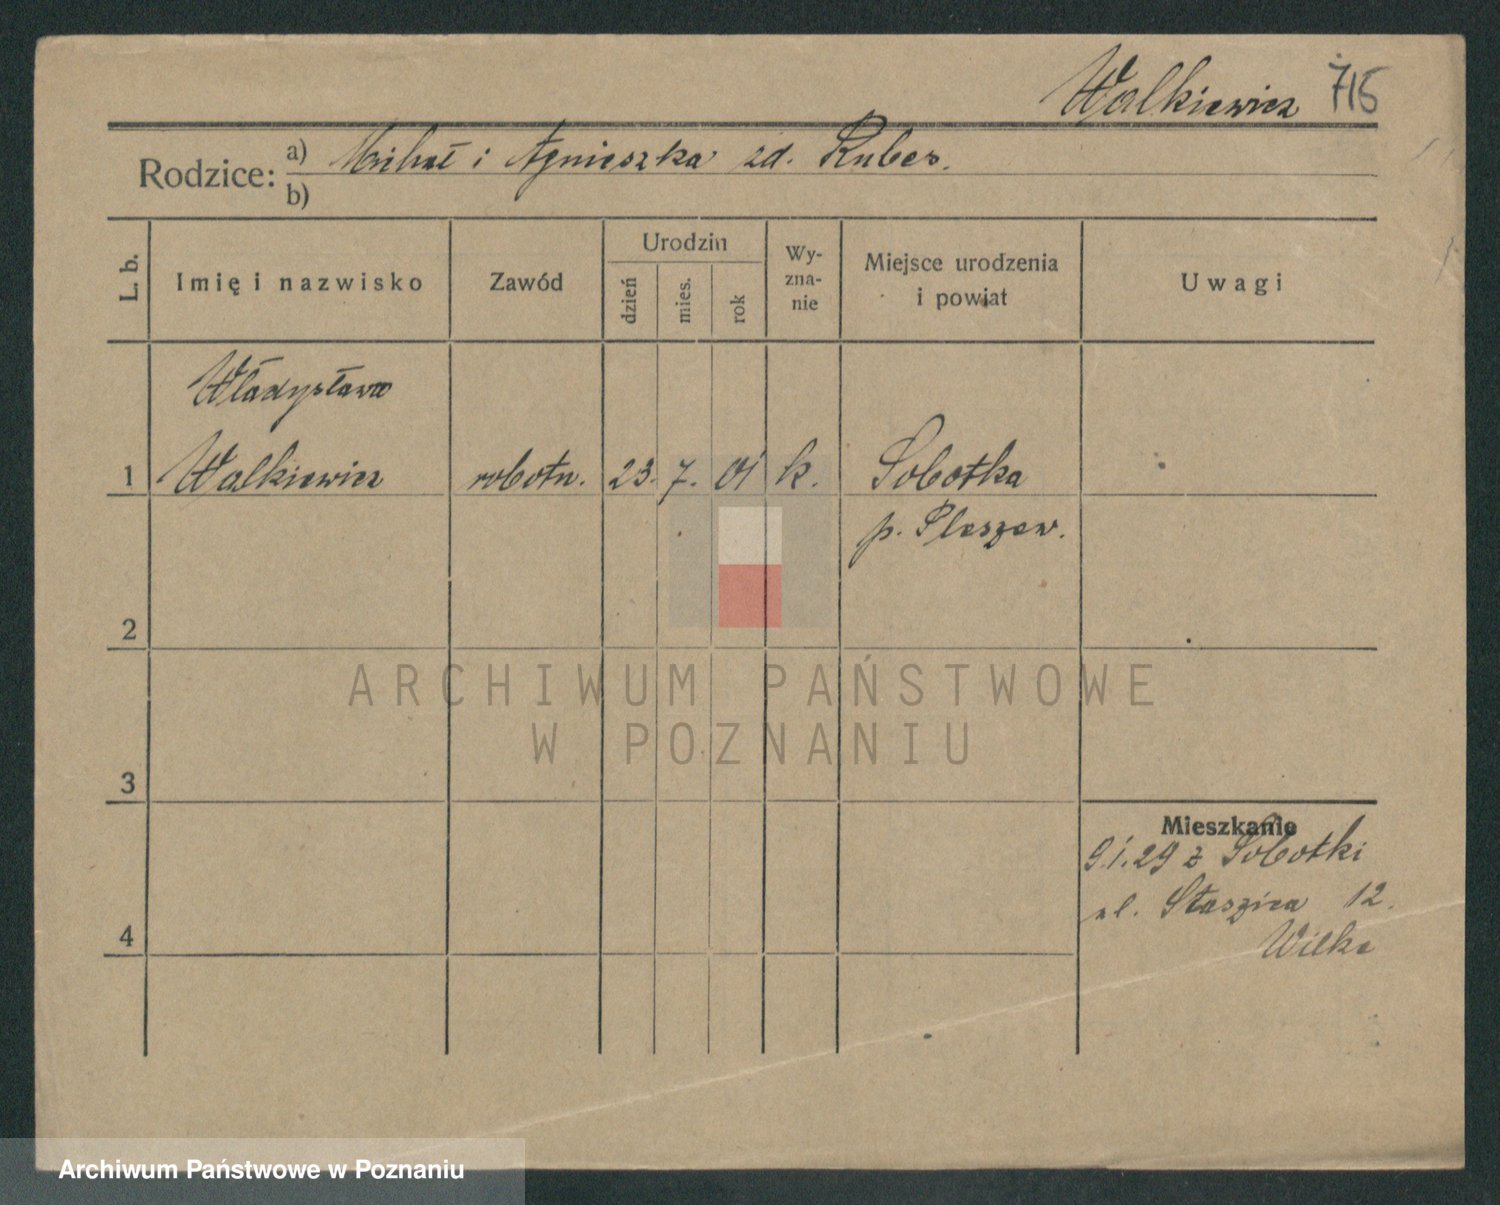 Walkiewicz 715
Rodzice: a) Michał i Agnieszka zd. Kubes.
b)
L. b.
Imię i nazwisko
Zawód
Urodzin
dzień
mies.
rok
Wy-
zna-
nie
Miejsce urodzenia
i powiat
Uwagi
Władysława
1 Walkiewicz robotn. 23. 7. 01 k. Sobotka
p. Pleszew.
2
3
4
Mieszkanie
9.1.29 z Sobotki
ul. Staszica 12.
Wilke
ARCHIWUM PAŃSTWOWE
W POZNANIU
Archiwum Państwowe w Poznaniu